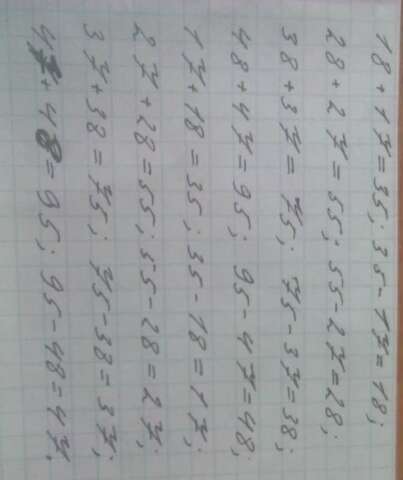 18+17=35; 35-17=18;
28+27=55; 55-27=28;
38+37=75; 75-37=38;
48+47=95; 95-47=48;
17+18=35; 35-18=17;
27+28=55; 55-28=27;
37+38=75; 75-38=37;
47+48=95; 95-48=47.